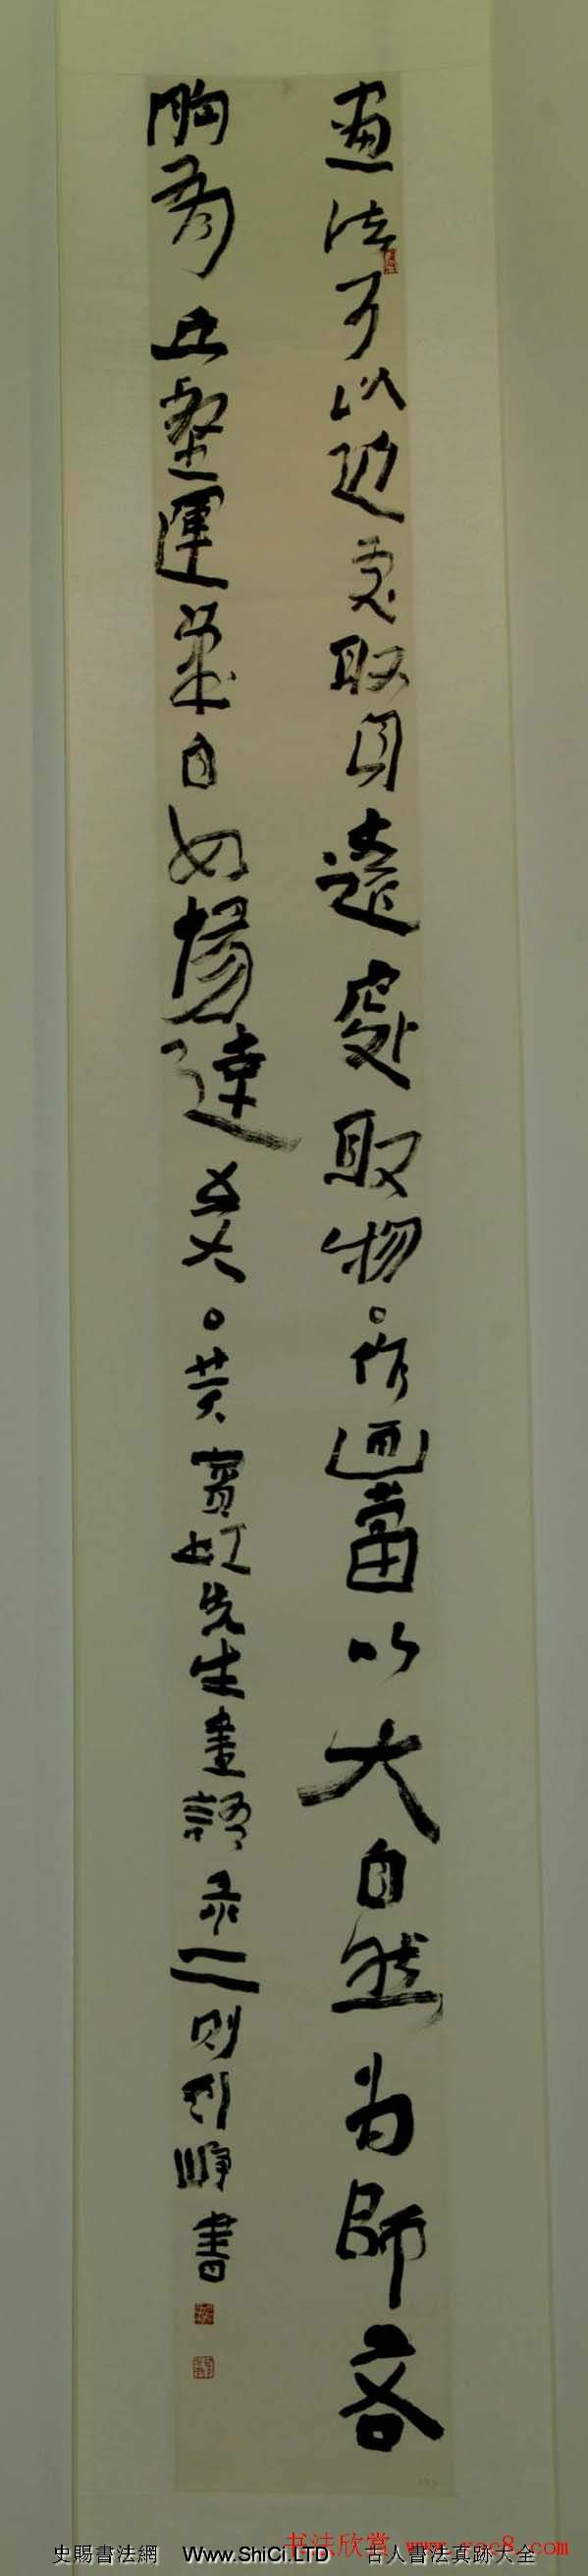 畫法可以近處取身遠處取物。作画當以大自然為師若
胸有丘壑運筆自如暢達矣。黃賓虹先生畫語录一則 書
书法欣赏 www.yac8.com
史賜書法網 Www.ShiCi.LTD 古人書法真跡大全